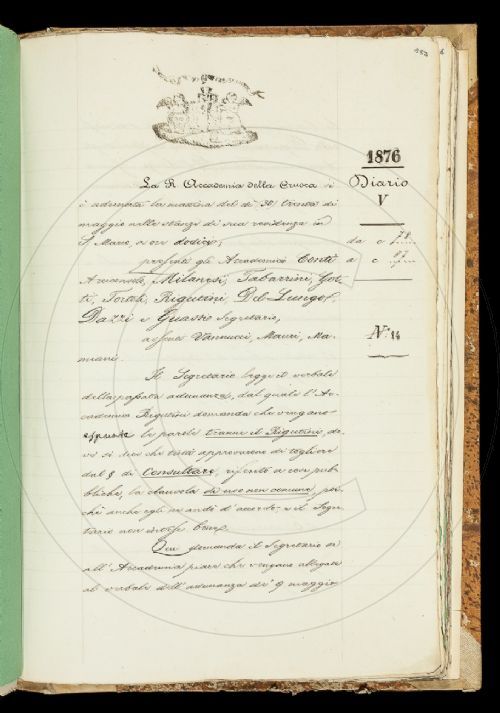 153
1876
Diario
V
da c 78
a c 87
N.º 14
La R. Accademia della Crusca si
è adunata la mattina del dì 30 trenta di
maggio nelle stanze di sua residenza in
S. Marco, a ore dodici,
presenti gli Accademici Conti
Arciconsolo, Milanesi, Tabarrini, Got-
ti, Tortoli, Rigutini, Del-Lungo,
Dazzi e Guasti Segretario,
assenti Vannucci, Mauri, Ma-
miani.
Il Segretario legge il verbale
della passata adunanza, dal quale l'Ac-
cademico Rigutini domanda che vengano
le parole tranne il Rigutini, do-
ve si dice che tutti approvarono di togliere
dal § di Consultare, riferito a cose pub-
bliche, la clausola di uso non comune, poi-
chè anche egli andò d'accordo, e il Segre-
tario non intese bene.
Qui domanda il Segretario se
all'Accademia piace che vengano allegate
al verbale dell'adunanza di 9 maggio